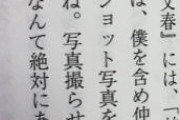 文春』には、
は、僕を含め仲
ンショット写真を
ね。写真撮らせ
なんて絶対にあ